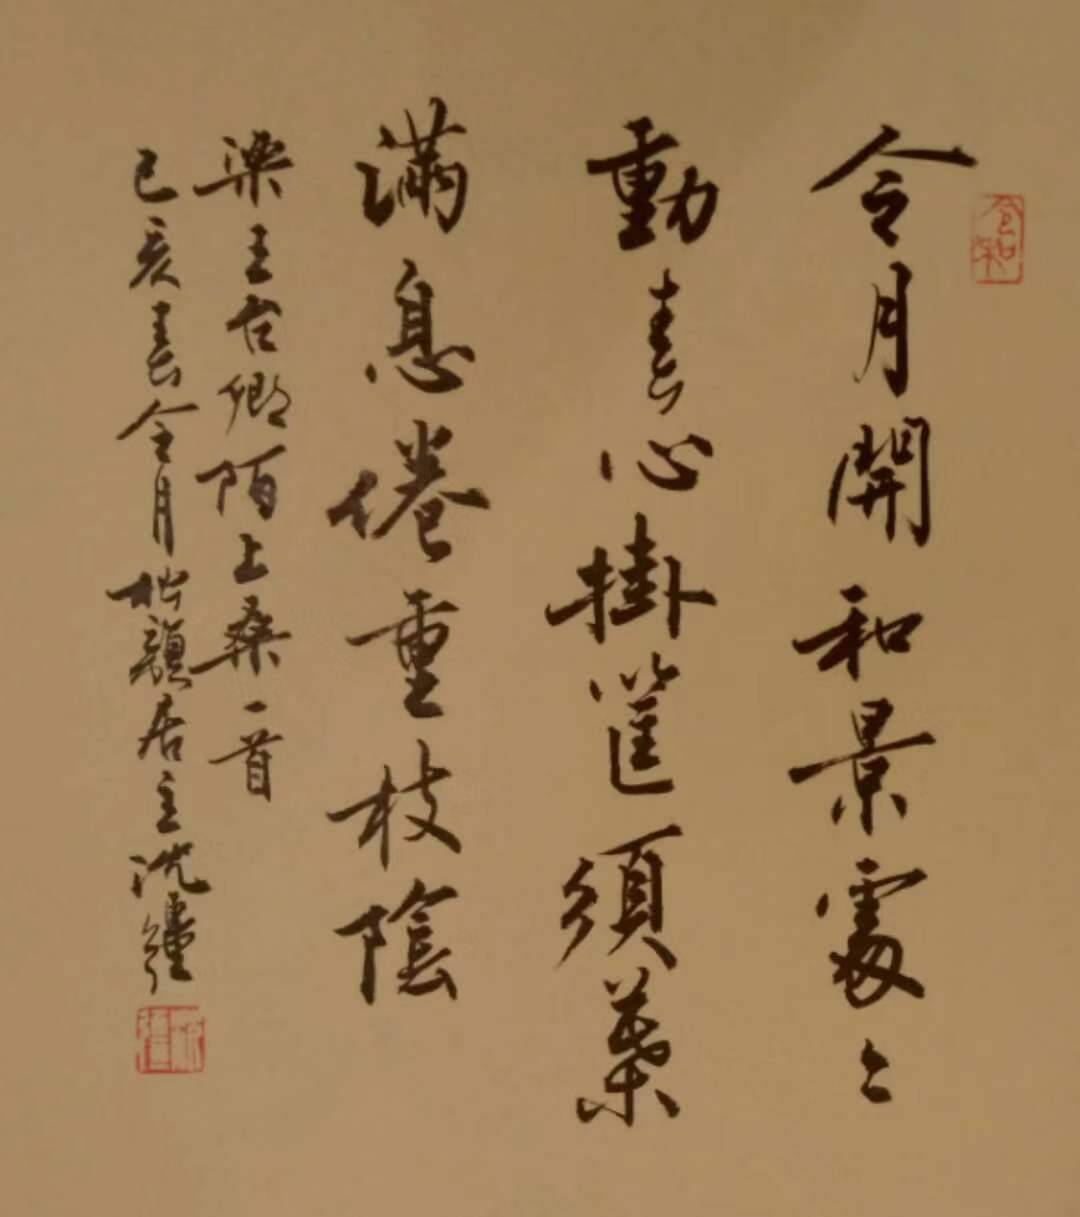 令月開和景處〻
動春心掛筐須葉
滿息倦重枝陰
梁王台卿陌上桑一首
己亥春令月 居主沈疆
令和